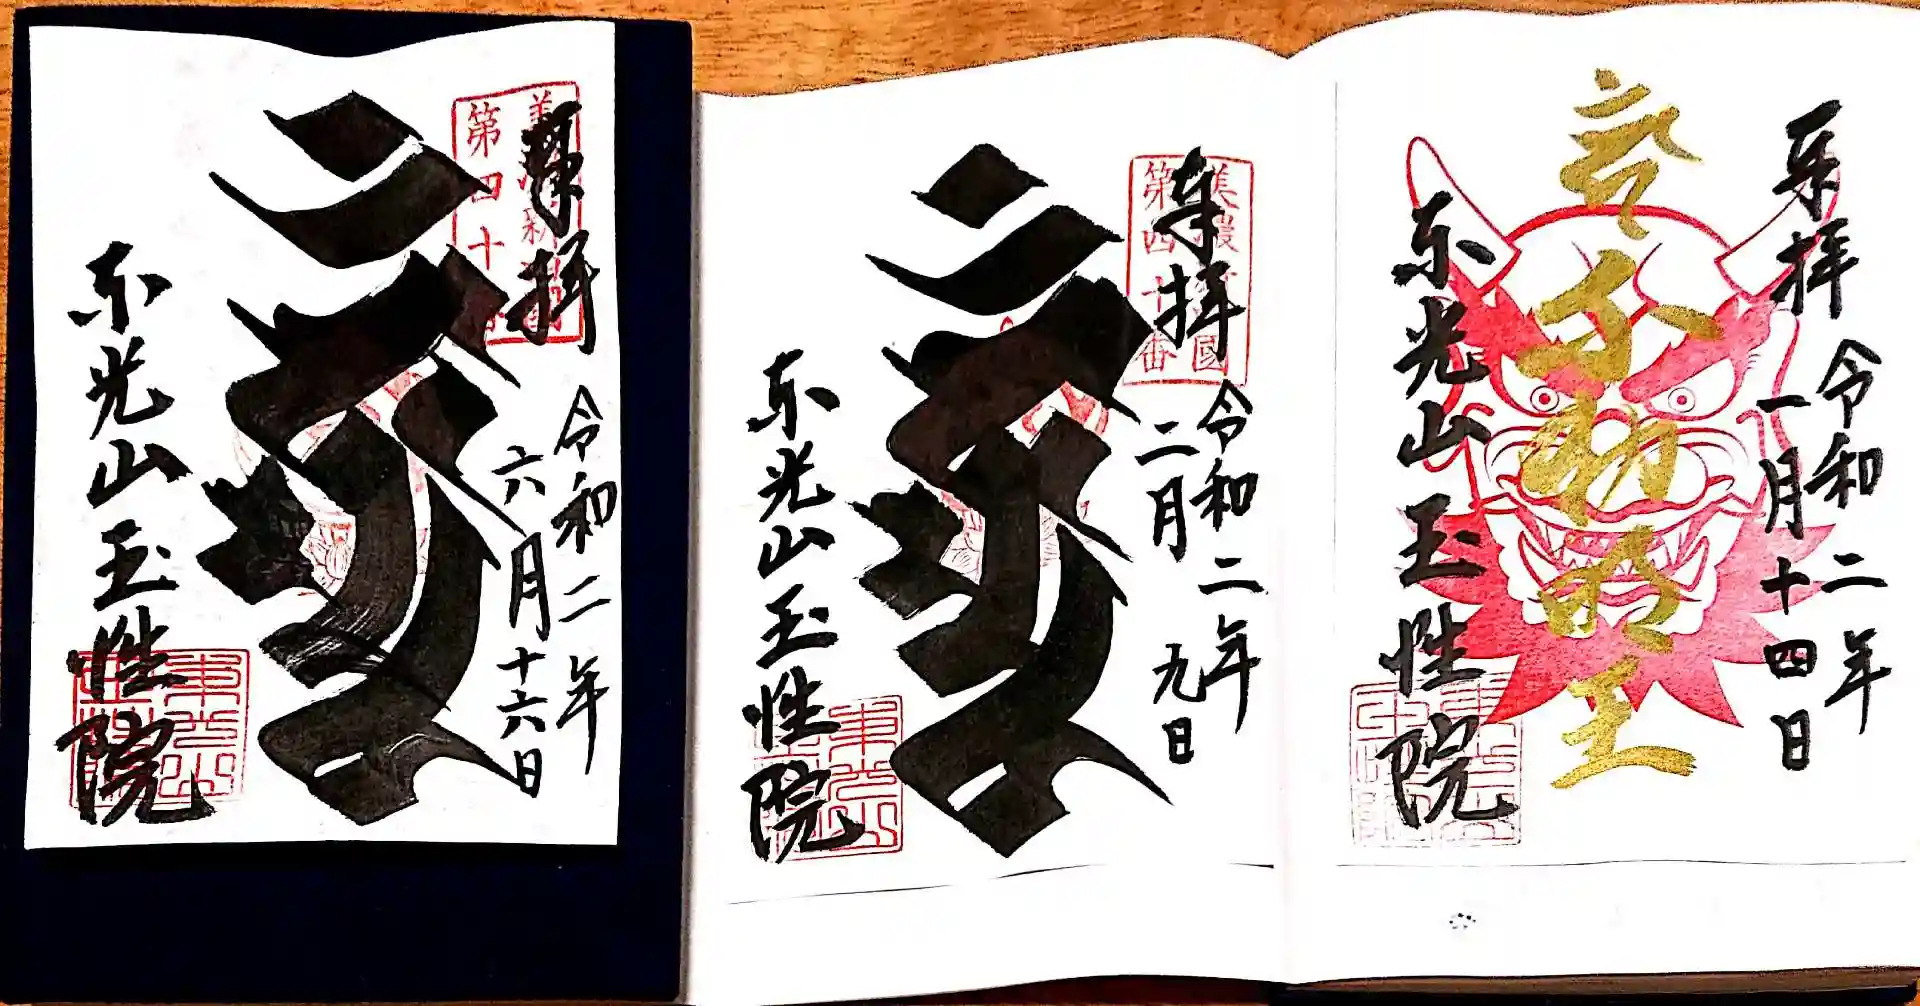 奉拝
令和二年
六月十六日
美濃新四國
第四十番
東光山玉性院
奉拝
令和二年
二月九日
美濃新四國
第四十番
東光山玉性院
奉拝
令和二年
一月十四日
不動明王
東光山玉性院